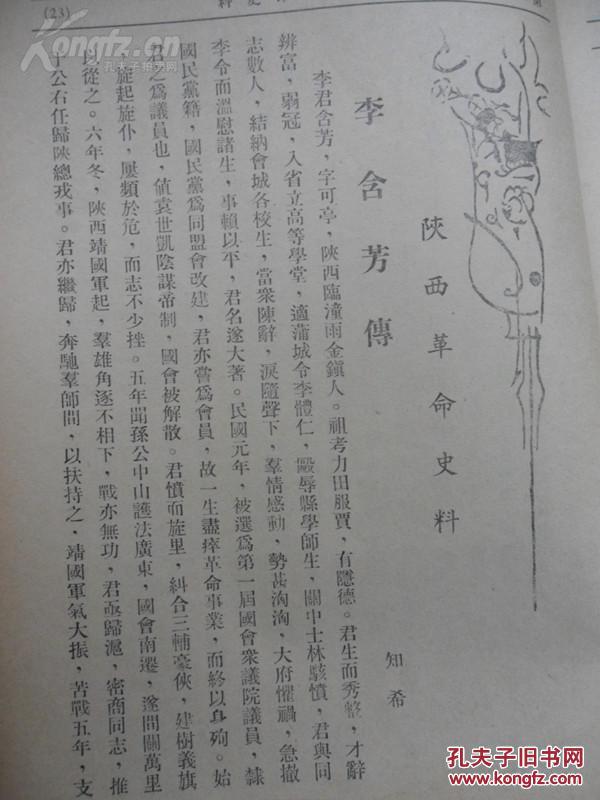 (23)
料
陝西革命史料
李含芳傳
知希
李君含芳，字可亭，陝西臨潼雨金鎭人。祖考力田服賈，有隱德。君生而秀整，才辭
辨富，弱冠，入省立高等學堂，適蒲城令李體仁，毆辱縣學師生，關中士林駭憤，君與同
志數人，結納會城各校生，當衆陳辭，淚隨聲下，羣情感動，勢甚洶洶，大府懼禍，急撤
李令而溫慰諸生，事賴以平，君名遂大著。民國元年，被選爲第一屆國會衆議院議員，隸
國民黨籍，國民黨爲同盟會改建，君亦嘗爲會員，故一生盡瘁革命事業，而終以身殉。始
君之爲議員也，値袁世凱陰謀帝制，國會被解散。君憤而旋里，糾合三輔豪俠，建樹義旗
，旋起旋仆，屢頻於危，而志不少挫。五年聞孫公中山護法廣東，國會南遷，遂間關萬里
以從之。六年冬，陝西靖國軍起，羣雄角逐不相下，戰亦無功，君亟歸滬，密商同志，推
于公右任歸陝總戎事。君亦繼歸，奔馳羣師間，以扶持之，靖國軍氣大振，苦戰五年，支
孔夫子旧书网
www.kongfz.com